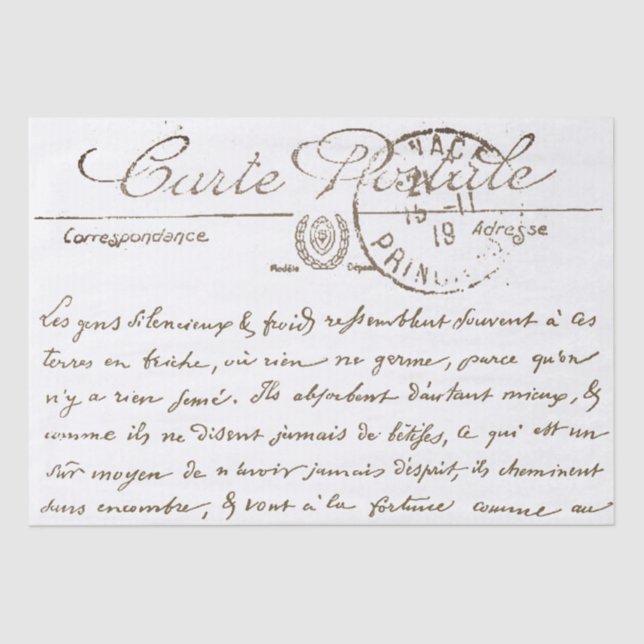 Carte Postale
NACE
15-11
19
PRINC
Correspondance
Adresse
Modèle Dépos
Les gens silencieux & froids ressemblent souvent à ces
terres en friche, où rien ne germe, parce qu'on
n'y a rien semé. Ils absorbent d'autant mieux, &
comme ils ne disent jamais de bêtises, ce qui est un
sûr moyen de n'avoir jamais d'esprit, ils cheminent
sans encombre, & vont à la fortune comme au